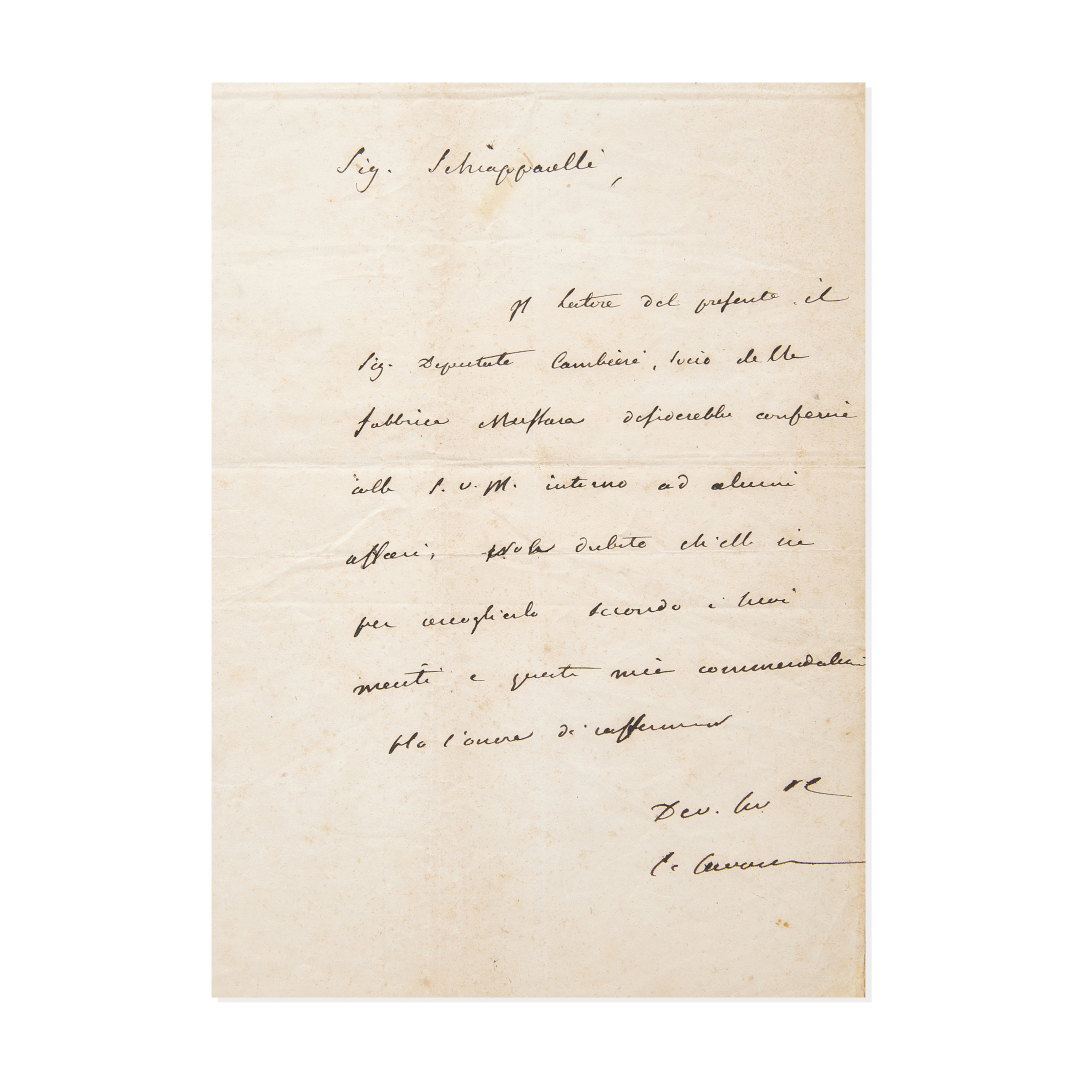 Sig. Schiapparelli,
Il latore del presente il
Sig. Deputato Cambieri, socio della
fabbrica desidererebbe conferire
colla S. V. M. intorno ad alcuni
affari, dubito ch'ella sia
per accoglierlo secondo i suoi
meriti e questa mia
l'onore di raffermar
Dev. Serv.re
C. Cavour